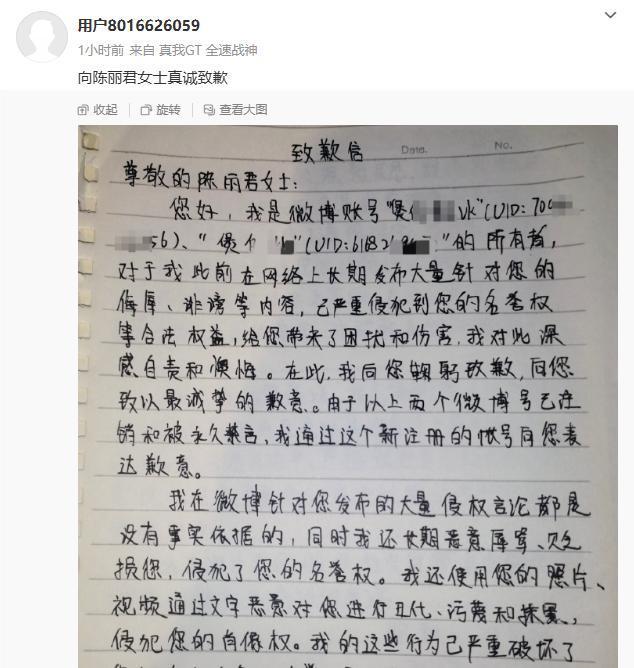 用户8016626059
1小时前 来自 真我GT 全速战神
向陈丽君女士真诚致歉
收起 旋转 查看大图
致歉信 Date. No.
尊敬的陈丽君女士:
您好,我是微博账号“煲 vk”(UID:70
56)、“煲 ”(UID:6182 )”的所有者,
对于我此前在网络上长期发布大量针对您的
侮辱、诽谤等内容,已严重侵犯到您的名誉权
等合法权益,给您带来了困扰和伤害,我对此深
感自责和懊悔。在此,我向您鞠躬致歉,向您
致以最诚挚的歉意。由于以上两个微博号已注
销和被永久禁言,我通过这个新注册的帐号向您表
达歉意。
我在微博针对您发布的大量侵权言论都是
没有事实依据的,同时我还长期恶意辱骂、贬
损您,侵犯了您的名誉权。我还使用您的照片、
视频通过文字恶意对您进行丑化、污蔑和抹黑,
侵犯您的肖像权。我的这些行为已严重破坏了